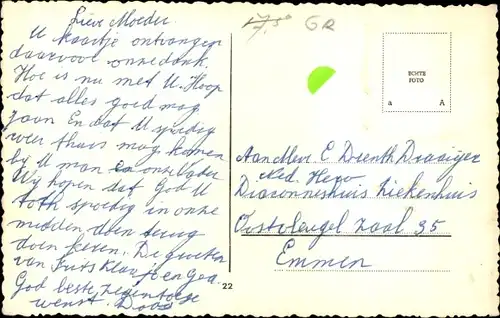 Lieve Moeder
U kaartje ontvangen
daarvoor onze dank.
Hoe is nu met U. Hoop
dat alles goed mag
gaan En dat U spoedig
weer thuis mag komen
by U man en onze Vader
Wy hopen dat God U
toth spoedig in onze
midden doen terug
doen keren. De groeten
van Frits Klaasje en Gea.
God beste zegen toege
wenst. Dood
17,50 GR
ECHTE
FOTO
a A
Aan Mevr E Drenth Draaijer
Ned. Herv
Diaconneshuis Ziekenhuis
Oostvleugel zaal 35
Emmen
22